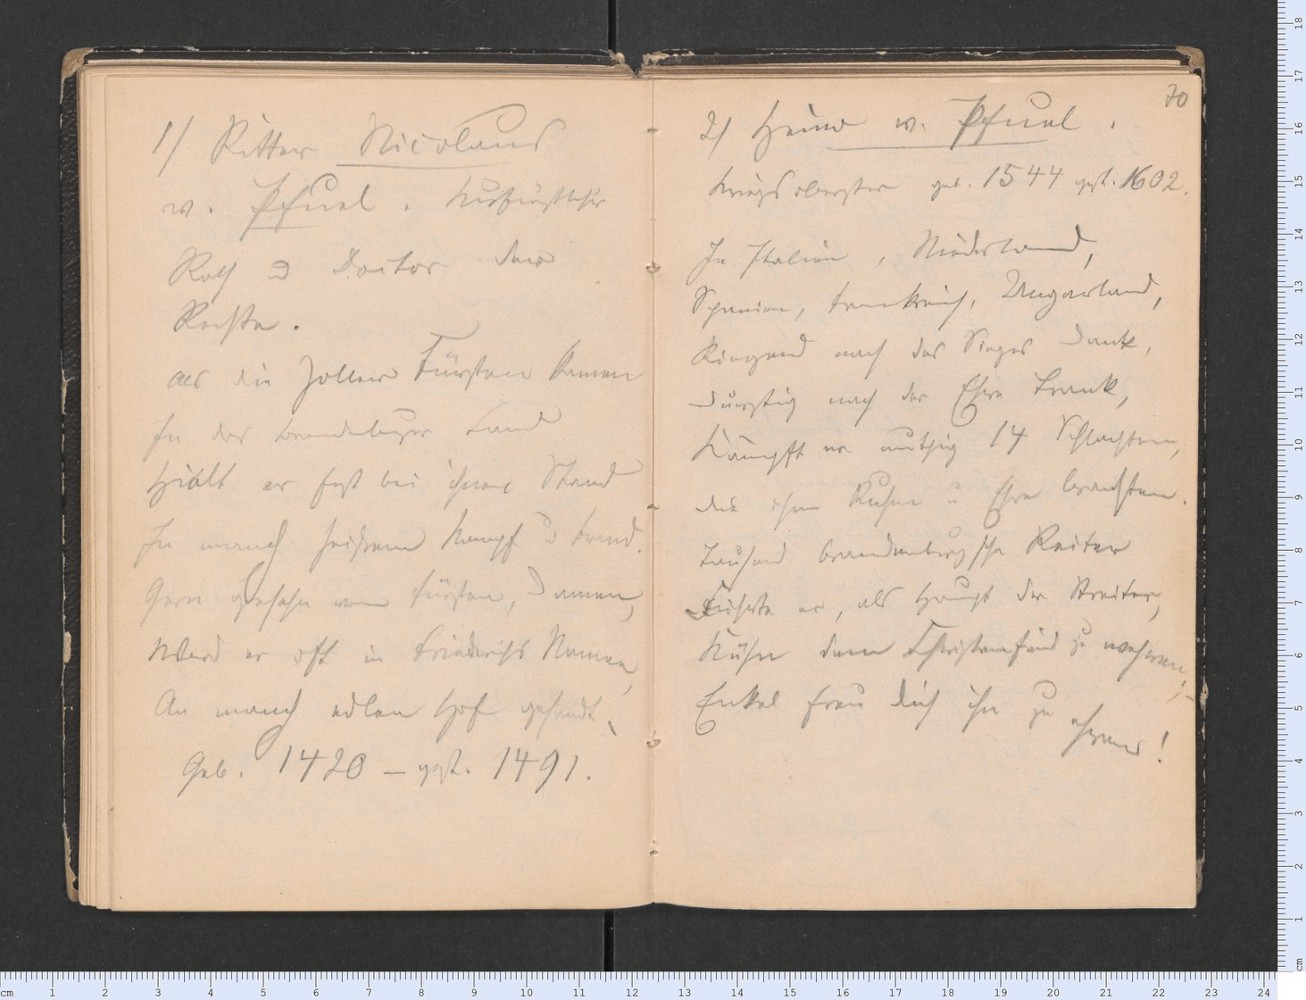 1) Ritter Nicolaus
v. Pfuel. Kurfürstlicher
Rath u Doctor der
Rechte.
Als die Zollern Fürsten kamen
In das brandenburger Land
Hielt er fest bei ihnen Stand
In manch heißem Kampf u Brand.
Gern gesehn von Fürsten, Damen,
Ward er oft in Friedrichs Namen,
An manch edlen Hof gesandt.
Geb. 1420 – gest. 1491.
70
2) Heino v. Pfuel.
Kriegsoberster geb. 1544 gest. 1602.
In Italien, Niederland,
Spanien, Frankreich, Ungarland,
Ringend nach des Sieges Dank,
Durstig nach der Ehre Trank,
Kämpft er muthig 14 Schlachten,
die ihm Ruhm u Ehre brachten.
Tausend brandenburgsche Reiter
Führte er, als Haupt der Streiter,
Kühn dem Christenfeind zu wehren;–
Enkel freu dich ihn zu ehren!